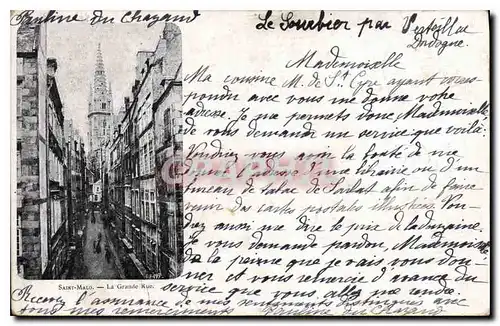 Pauline du Chazaud
Le Sourbier par Verteillac
Dordogne.
Mademoiselle
Ma cousine M. de St Cyr ayant corres-
pondu avec vous me donne votre
adresse. Je me permets donc Mademoiselle
de vous demander un service que voilà:
Voudriez vous avoir la bonté de me
donner l'adresse d'une librairie ou d'un
bureau de tabac de Sarlat afin de faire
venir des cartes postales illustrées. Vou-
driez aussi me dire le prix de la douzaine.
Je vous demande pardon, Mademoiselle
de la peine que je vais vous don-
ner et vous remercie d'avance du
service que vous allez me rendre.
SAINT-MALO. - La Grande Rue.
Recevez l'assurance de mes sentiments distingués avec
tous mes remerciements Pauline du Chazaud